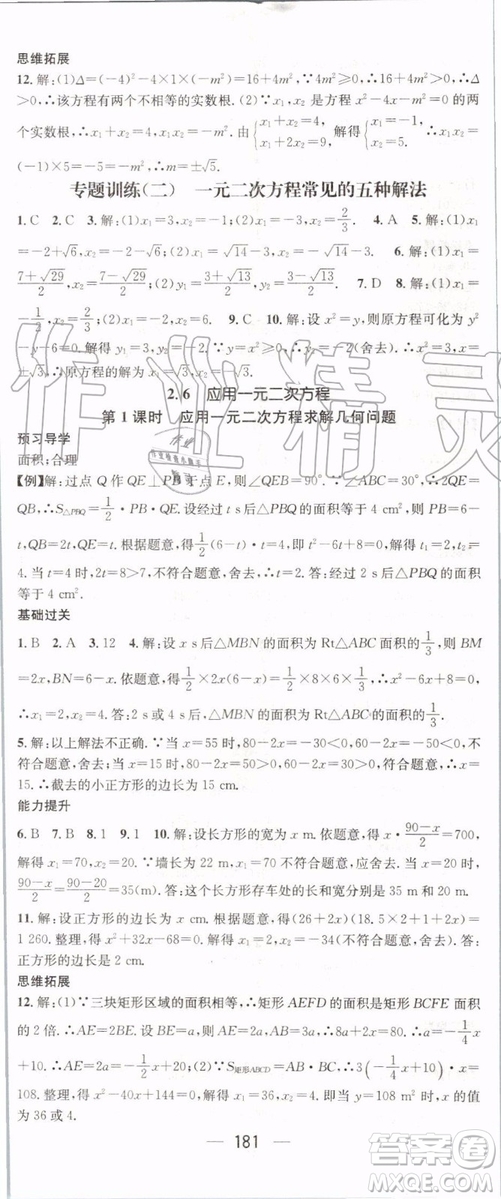 思维拓展
12. 解:(1)Δ=(-4)²-4×1×(-m²)=16+4m². ∵4m²≥0,∴16+4m²>0,
∴该方程有两个不相等的实数根. (2)∵x₁,x₂是方程 x²-4x-m²=0 的两
个实数根,∴x₁+x₂=4. 由{x₁+x₂=4, x₁+2x₂=9, 解得{x₁=-1, x₂=5. ∴x₁·x₂=-m²=
(-1)×5=-5,解得 m=±√5.
专题训练(二) 一元二次方程常见的五种解法
1. C 2. C 3. 解:(1)x₁=3,x₂=-1; (2)x₁=3,x₂=2/3. 4. A 5. 解:(1)x₁
=-2+√6,x₂=-2-√6; (2)x₁=-1/2,x₂=-3/2. 6. 解:(1)x₁=
(7+√29)/2,x₂=(7-√29)/2; (2)x₁=(3+√13)/2,x₂=(3-√13)/2. 7. D 8. 解:(1)x₁=
-1/2,x₂=3; (2)x₁=6,x₂=-2. 9. C 10. 解:设 y=x²,则原方程可化为 y²
-y-6=0. 解得 y₁=3,y₂=-2. 当 y=3 时,x²=3,
±√3,∴原方程的解为 x₁=√3,x₂=-√3.
2.6 应用一元二次方程
第 1 课时 应用一元二次方程求解几何问题
预习导学
面积;合理
【例】解:过点 Q 作 QE⊥PB 于点 E,则∠QEB=90°. ∵∠ABC=30°,∴2QE
=QB,∴S△PBQ=1/2·PB·QE. 设经过 t s 后△PBQ 的面积等于 4 cm²,则 PB=6
-t,QB=2t,QE=t. 根据题意,得 1/2·(6-t)·t=4. t²-6t+8=0. t₁=2,t₂
=4. 当 t=4 时,2t=8>7,不符合题意,应舍去,取 t=2. 答:经过 2 s 后△PBQ 的面积
等于 4 cm².
基础过关
1. B 2. A 3. 12 4. 解:设 x s 后,△MBN 的面积为 Rt△ABC 面积的 1/3,则 BM
=2x,BN=6-x. 依题意,得 1/2·2x(6-x)=1/2×8×6×1/3,化简,得 x²-6x+8=
0. ∴x₁=2,x₂=4. 答:2 s 或 4 s 后,△MBN 的面积为 Rt△ABC 的面积的 1/3.
5. 解:以上解法不正确. ∵当 x=55 时,80-2x=-30<0,60-2x=-50<0,
∴x=55 不符合题意,应舍去. 当 x=15 时,80-2x=50>0,60-2x=30>0,∴x=
15. ∴截去的小正方形的边长为 15 cm.
能力提升
6. B 7. B 8. 1 9. 1 10. 解:设长方形的宽为 x m. 依题意,得 x·(90-x)/2=700,
解得 x₁=20,x₂=70. ∵墙长为 22 m,∴x=70 不符合题意,应舍去. ∴x=20,
(90-x)/2=(90-20)/2=35. 答:这个长方形存车处的长和宽分别是 35 m 和 20 m.
11. 解:设正方形的边长为 x cm. 根据题意,得(26+2x)(14+2x)-26×14=
1 260. 整理,得 x²+20x-
正方形的边长为
思维拓展
12. 解:(1)∵三块矩形区域的面积相等,∴矩形 AEFD 的面积是矩形 BCFE 面积
的 2 倍. ∴AE=2BE. 设 BE=a,则 AE=2a. ∴8a+2x=80. ∴a=-1/4x
+10. ∴AE=2a=-1/2x+20; (2)∵S矩形ABCD=AB·BC,∴3(-1/4x+10)x=
108. 整理,得 x²-40x+144=0. 解得 x₁=36,x₂=4. 均符合题意,∴x m 的
值为 36 或 4.
181